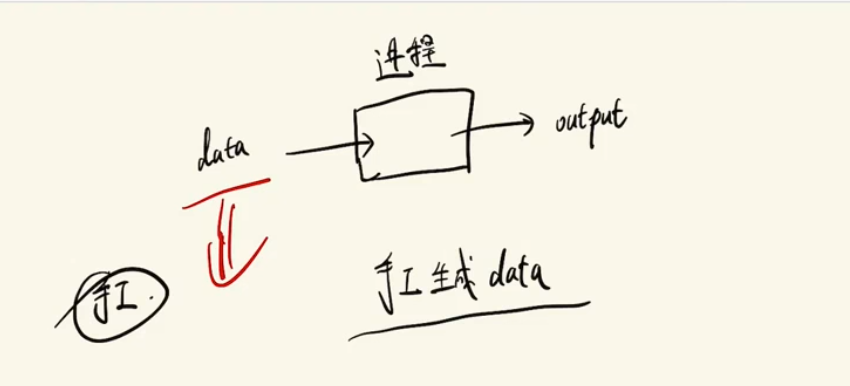 进程
data
output
手工.
手工生成 data